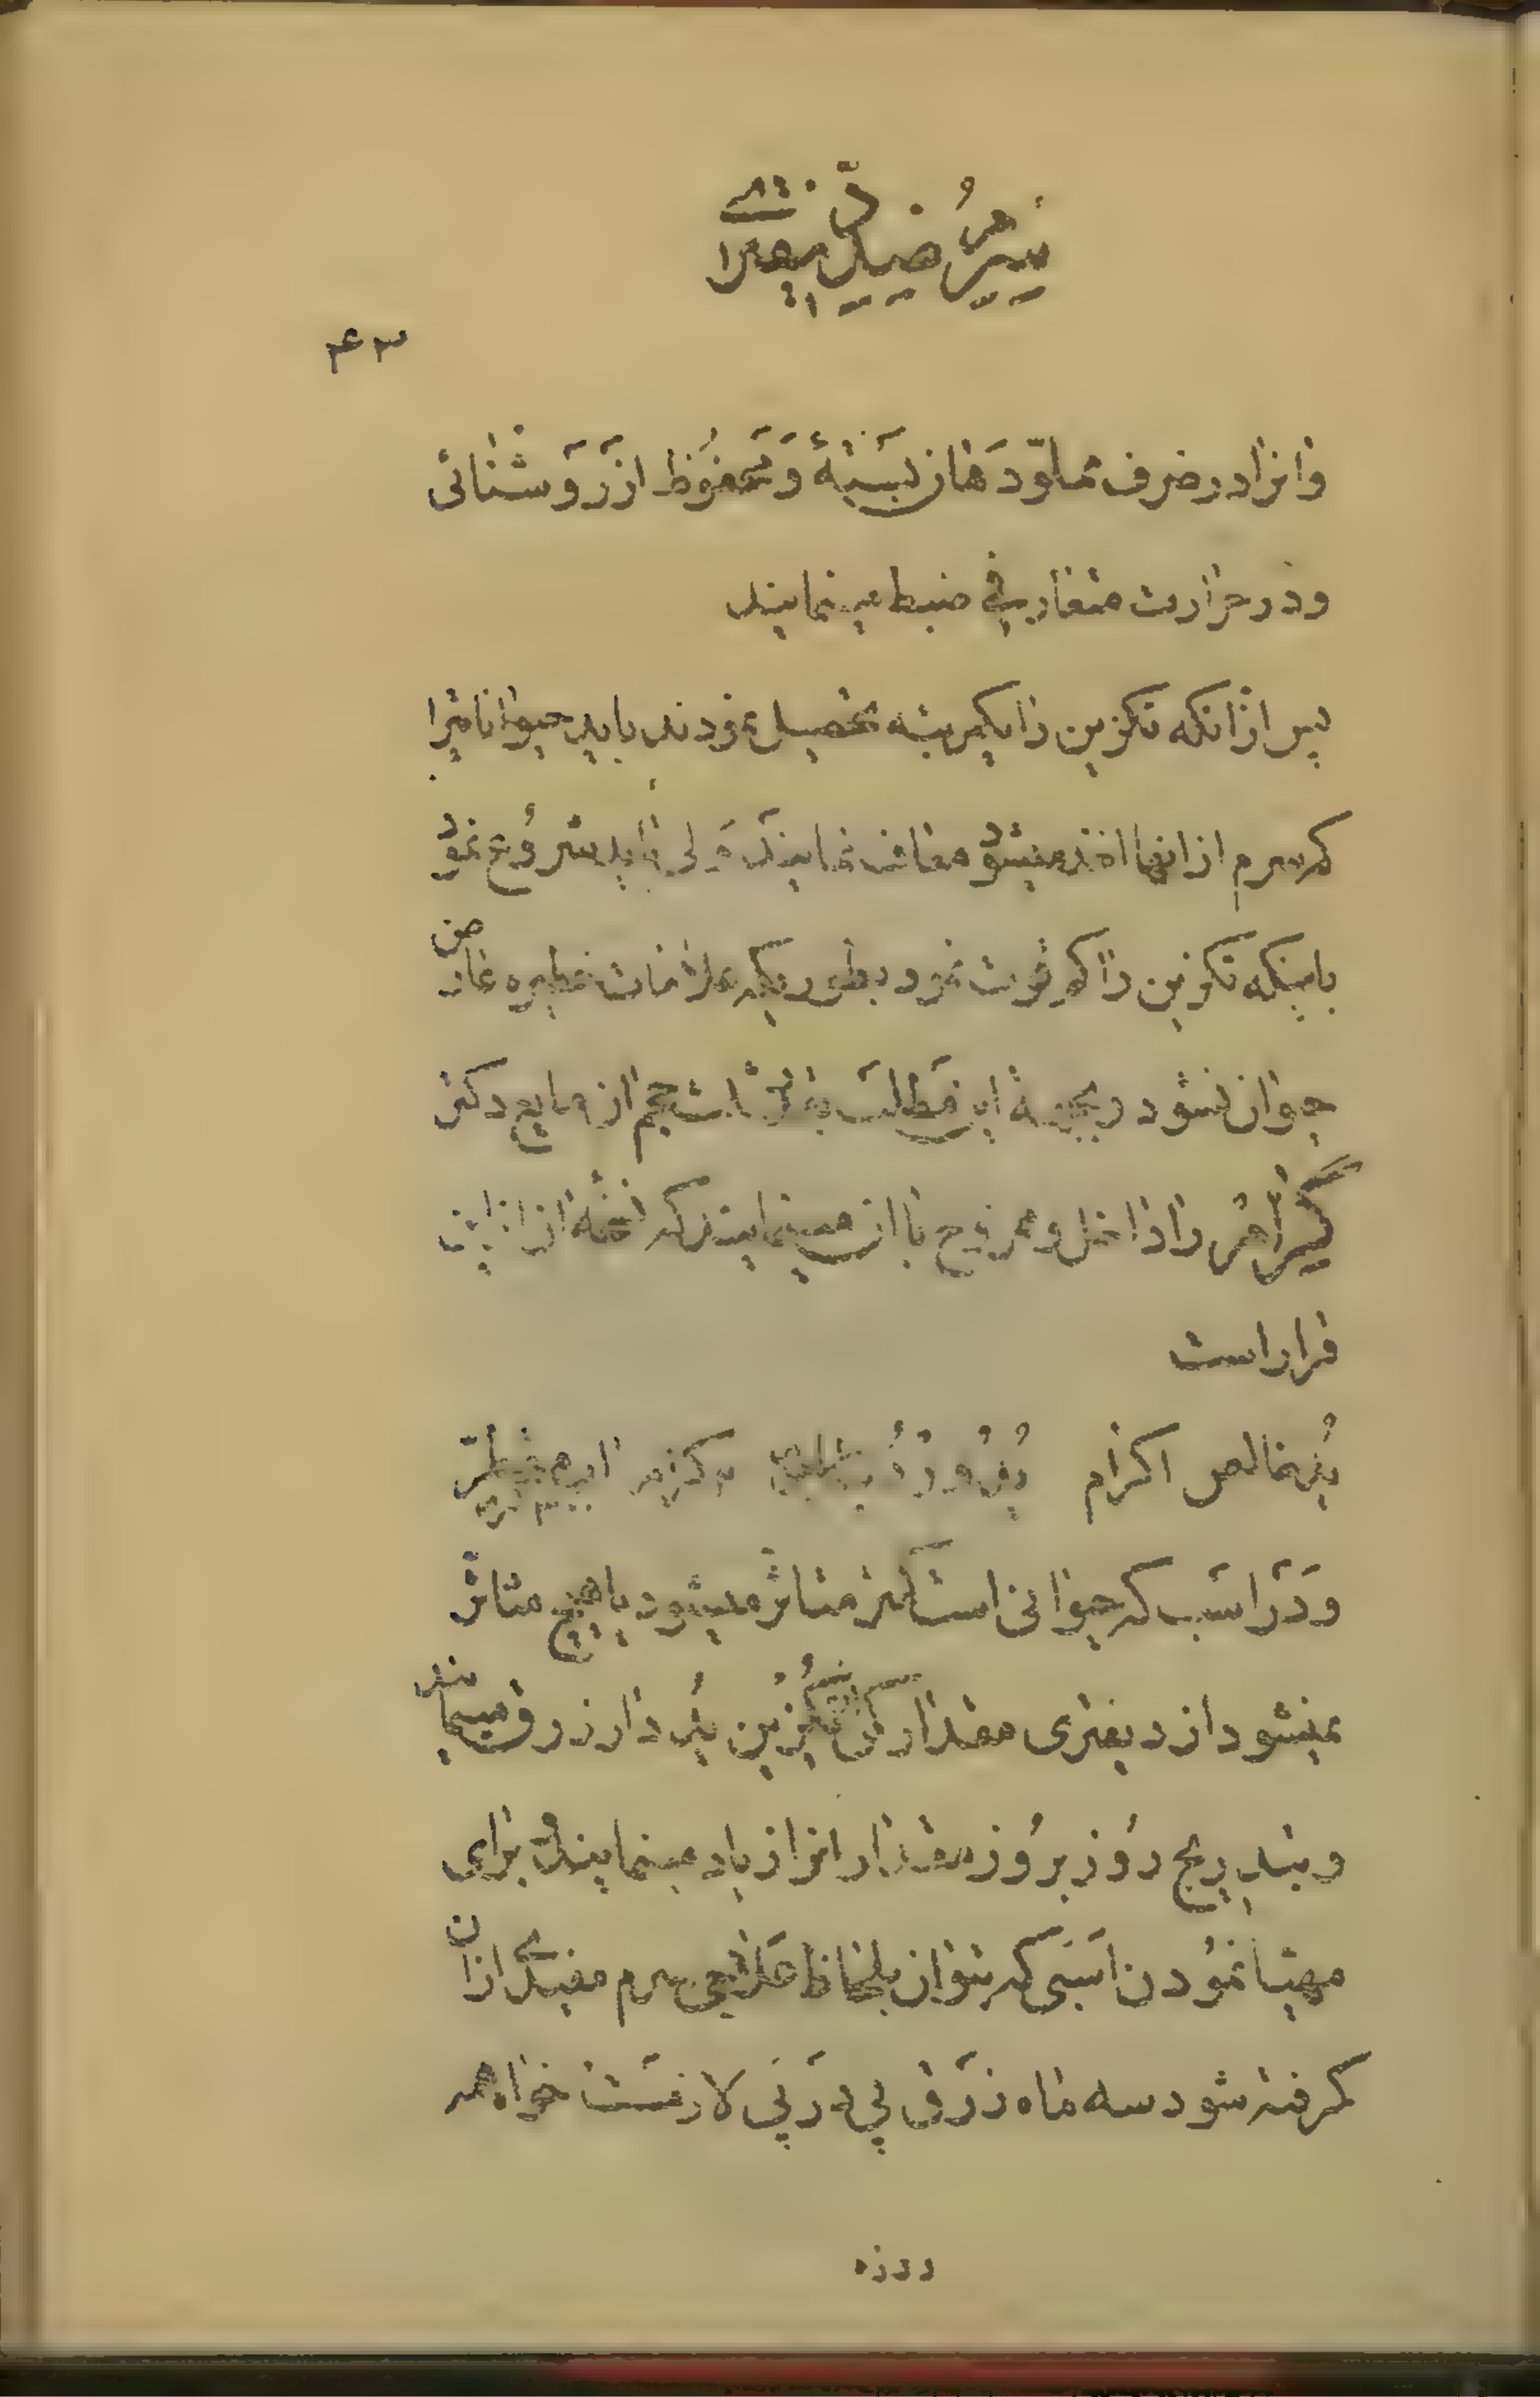 سرم ضد دیفتری
۴۳
و انرا در ظرف مملو دهان بسته و محفوظ از روشنائی
و در حرارت متعارفی ضبط مینمایند
پس از انکه تکزین دیفتریه تحصیل نمودند باید حیواناتیرا
که سرم از انها اخذ میشود معاف نمایند ولی باید شروع نمود
باینکه تکزین را کم قوت نمود بطوریکه علامات خطیره عارض
حیوان نشود در نتیجه این مطلب به ثلث حجم از مایع دکتر
گرام را داخل و ممزوج با ان مینمایند که نسخه ان از این
قرار است
ید خالص اکرام یدور د پطاسیم
و در اسب که حیوانی است کمتر متاثر میشود یا هیچ متاثر
نمیشود از دیفتری مقدار کمی تکزین ید دار زرق مینمایند
و بتدریج روز بروز مقدار انرا زیاد مینمایند و برای
مهیا نمودن اسبی که بتوان بلحاظ علاجی سرم مفیدی از ان
گرفته شود سه ماه زرق پی در پی لازمست خواهد